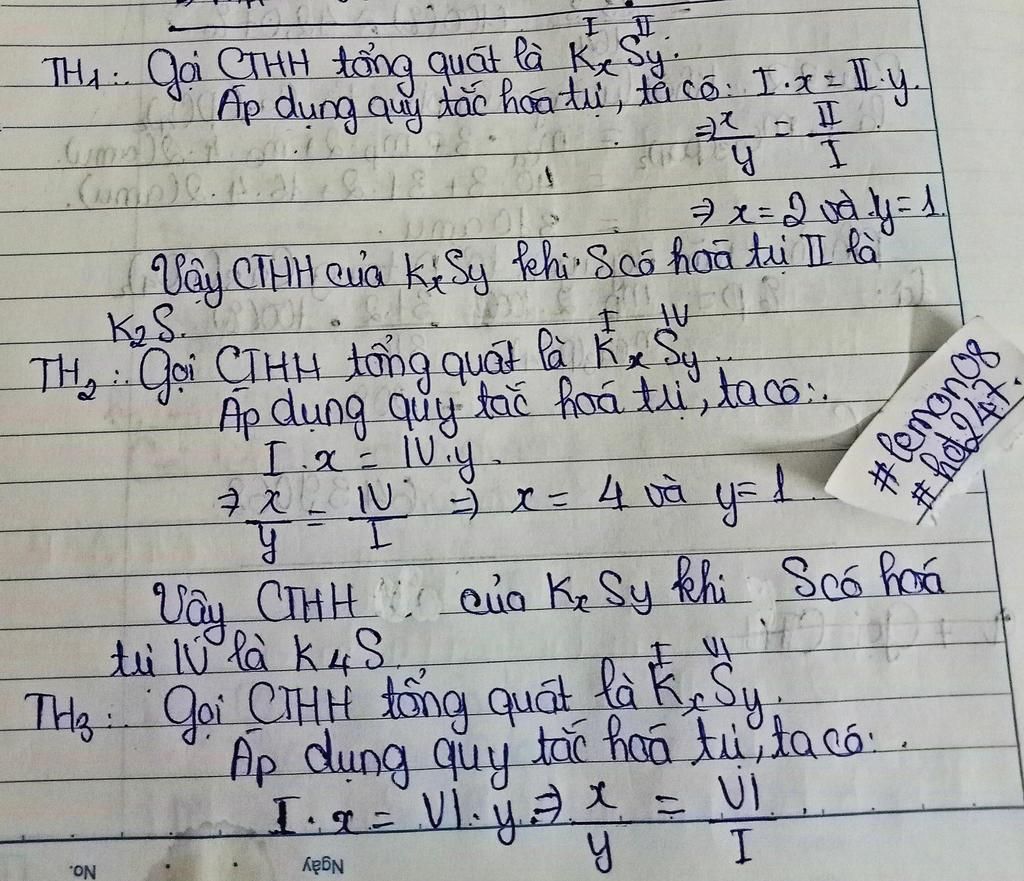 I II
TH1: Gọi CTHH tổng quát là KxSy.
Áp dụng quy tắc hoá trị, ta có: I.x = II.y.
⇒ x/y = II/I
⇒ x = 2 và y = 1.
Vậy CTHH của KxSy khi S có hoá trị II là
K2S.
I IV
TH2: Gọi CTHH tổng quát là KxSy.
Áp dụng quy tắc hoá trị, ta có:
I.x = IV.y.
⇒ x/y = IV/I ⇒ x = 4 và y = 1
Vậy CTHH của KxSy khi S có hoá
trị IV là K4S.
I VI
TH3: Gọi CTHH tổng quát là KxSy.
Áp dụng quy tắc hoá trị, ta có:
I.x = VI.y ⇒ x/y = VI/I
#lemon08
#hd247
No. Ngày